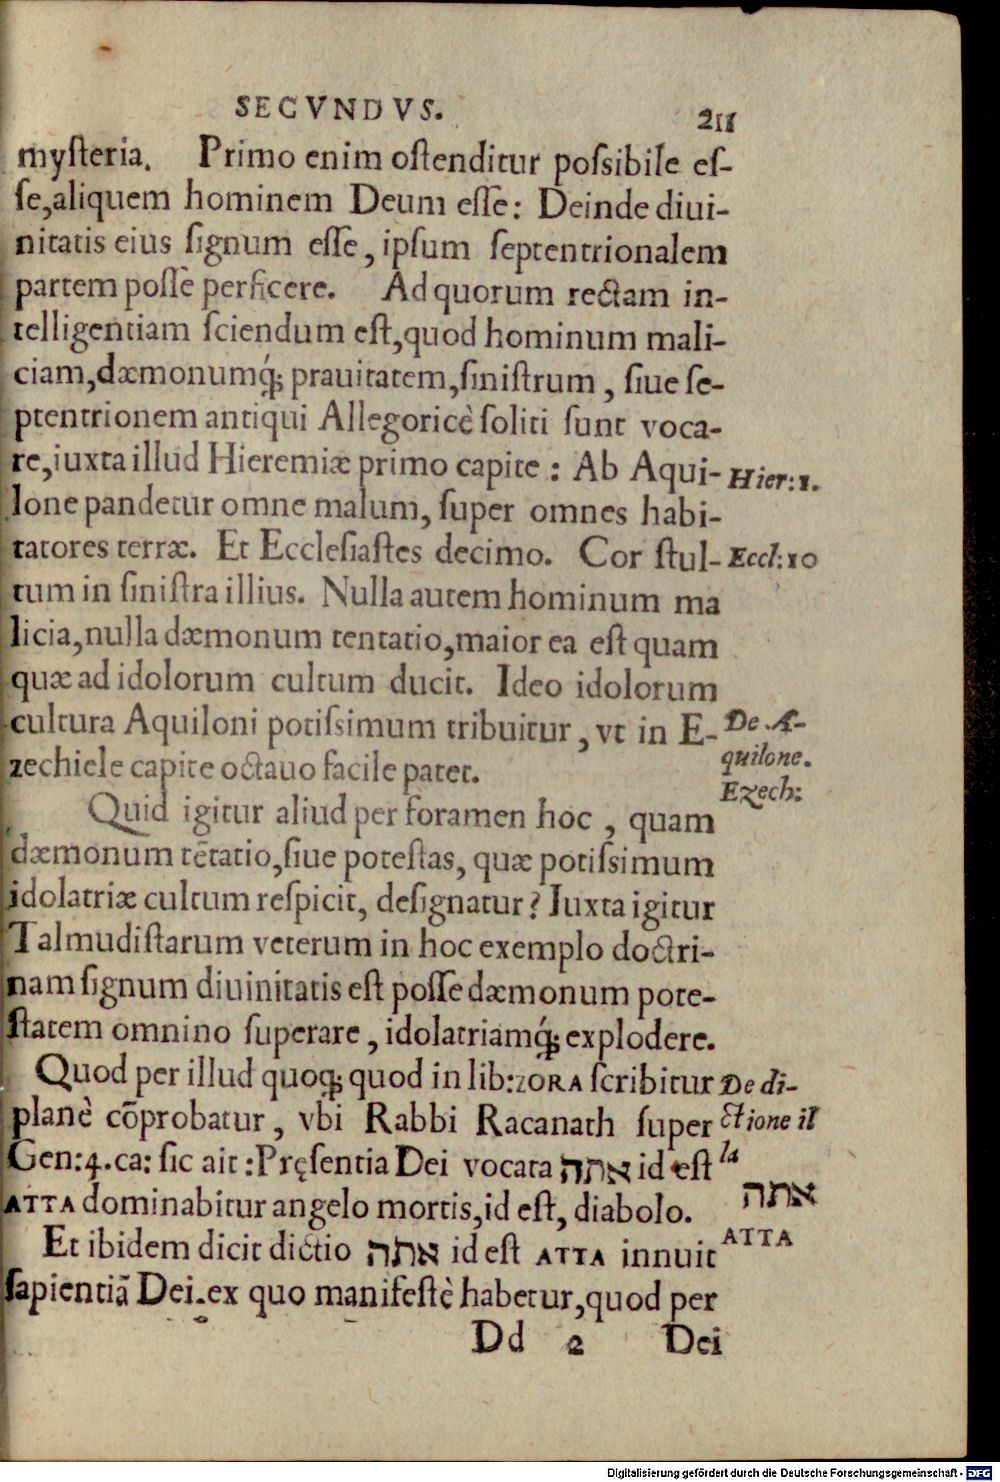 SECVNDVS.
211
mysteria. Primo enim ostenditur possibile es-
se,aliquem hominem Deum esse: Deinde diui-
nitatis eius signum esse, ipsum septentrionalem
partem posse perficere. Ad quorum rectam in-
telligentiam sciendum est,quod hominum mali-
ciam,dæmonumq́; prauitatem,sinistrum, siue se-
ptentrionem antiqui Allegoricè soliti sunt voca-
re,iuxta illud Hieremiæ primo capite: Ab Aqui-
Hier:1.
lone pandetur omne malum, super omnes habi-
tatores terræ. Et Ecclesiastes decimo. Cor stul-
Eccl:10
tum in sinistra illius. Nulla autem hominum ma
licia,nulla dæmonum tentatio,maior ea est quam
quæ ad idolorum cultum ducit. Ideo idolorum
cultura Aquiloni potissimum tribuitur, vt in E-
De A-
zechiele capite octauo facile patet.
quilone.
Ezech:
Quid igitur aliud per foramen hoc, quam
dæmonum tētatio,siue potestas, quæ potissimum
idolatriæ cultum respicit, designatur? Iuxta igitur
Talmudistarum veterum in hoc exemplo doctri-
nam signum diuinitatis est posse dæmonum pote-
statem omnino superare, idolatriamq́; explodere.
Quod per illud quoq; quod in lib:ZORA scribitur
De di-
planè cōprobatur, vbi Rabbi Racanath super
ctione il
Gen:4.ca: sic ait:Pręsentia Dei vocata אתה id est
la
אתה
ATTA dominabitur angelo mortis,id est, diabolo.
Et ibidem dicit dictio אתה id est ATTA innuit
ATTA
sapientiā Dei.ex quo manifestè habetur,quod per
Dd 2 Dei
Digitalisierung gefördert durch die Deutsche Forschungsgemeinschaft - DFG